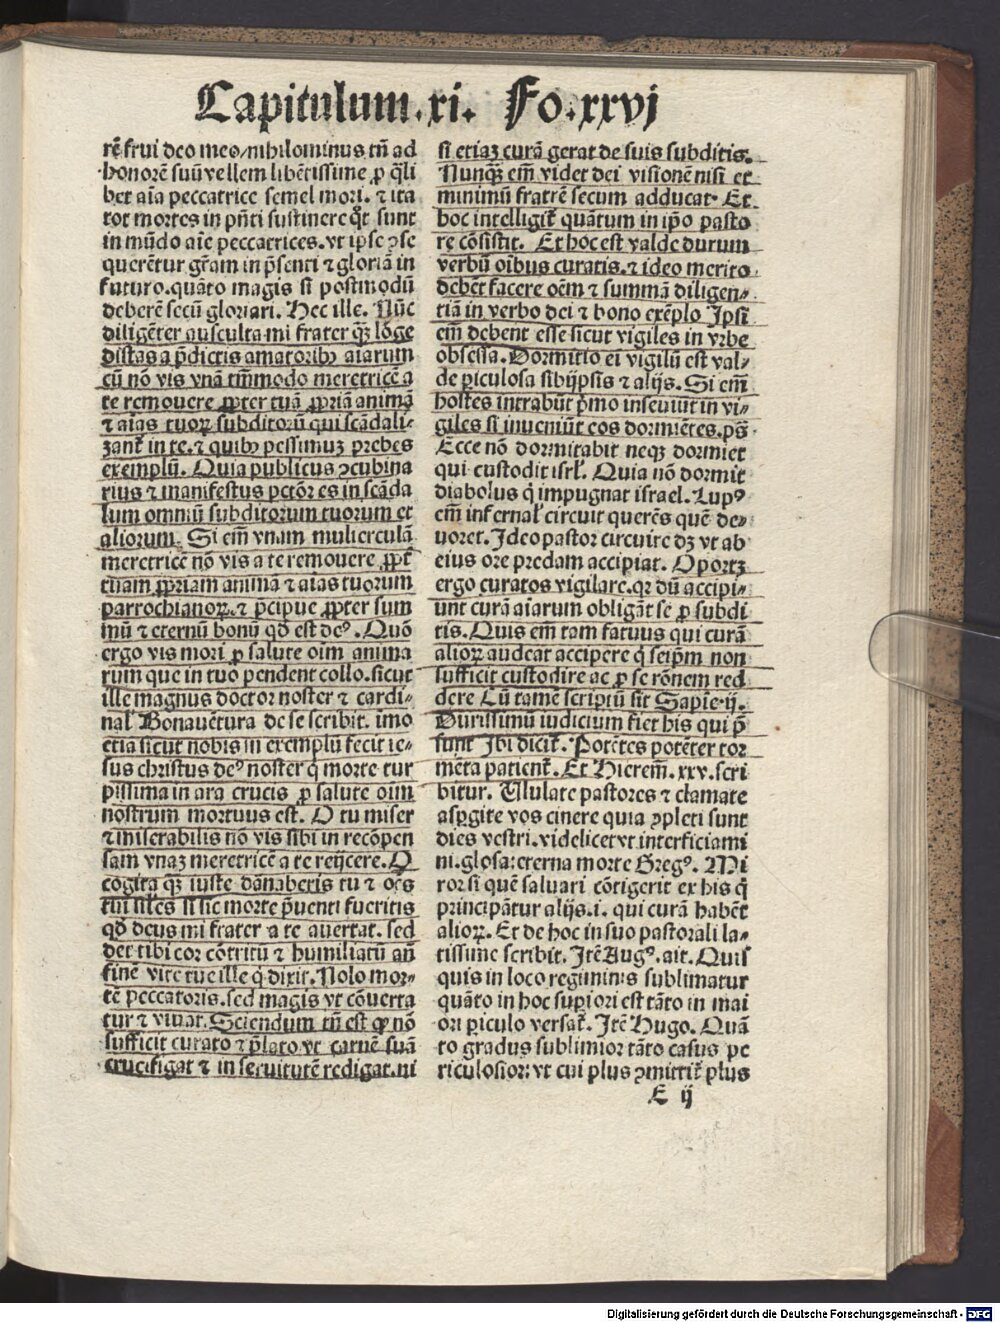 Capitulum.xi. Fo.xxvj
rē frui deo meo/nihilominus tñ ad
honorē suū vellem libētissime ꝓ q̄li
bet aīa peccatrice semel mori. ⁊ ita
tot mortes in pñti sustinere qͦt sunt
in mūdo aīe peccatrices. vt ipse ꝯse
querētur gr̄am in p̄senti ⁊ gloriā in
futuro. quāto magis si postmodū
deberē secū gloriari. Hec ille. Nūc
diligēter ausculta mi frater qꝫ lōge
distas a p̄dictis amatoribꝰ aīarum
cū nō vis vnā tm̄modo meretricē a
te remouere ꝓpter tuā ꝓpriā animā
⁊ aīas tuoꝝ subditoꝝ qui scādali-
zant̄ in te. ⁊ quibꝰ pessimuꝫ prebes
exemplū. Quia publicus ꝯcubina
rius ⁊ manifestus pctōr es in scāda
lum omniū subditorum tuorum et
aliorum. Si em̄ vnam mulierculā
meretricē nō vis a te remouere ꝓpt̄
tuam ꝓpriam animā ⁊ aīas tuorum
parrochianoꝝ. ⁊ p̄cipue ꝓpter sum
mū ⁊ eternū bonū qd̄ est deꝰ. Quō
ergo vis mori ꝓ salute oīm anima
rum que in tuo pendent collo. sicut
ille magnus doctor noster ⁊ cardi-
nal̄ Bonauētura de se scribit. imo
etiā sicut nobis in exemplū fecit ie-
sus christus deꝰ noster q̄ morte tur
pissima in ara crucis ꝓ salute oīm
nostrum mortuus est. O tu miser
⁊ miserabilis nō vis sibi in recōpen
sam vnaꝫ meretricē a te reijcere. O
cogita qꝫ iuste dānaberis tu ⁊ oēs
tui sil̄es si sic morte p̄uenti fueritis
qd̄ deus mi frater a te auertat. sed
det tibi cor cōtritū ⁊ humiliatū añ
finē vite tue ille q̄ dixit. Nolo mor-
tē peccatoris. sed magis vt cōuerta
tur ⁊ viuat. Sciendum tñ est ꝙ nō
sufficit curato ⁊ p̄lato vt carnē suā
crucifigat ⁊ in seruitutē redigat. ni
si etiaꝫ curā gerat de suis subditis.
Nunqꝫ em̄ videt dei visionē nisi et
minimū fratrē secum adducat. Et
hoc intelligit̄ quātum in ip̄o pasto
re cōsistit. Et hoc est valde durum
verbū oībus curatis. ⁊ ideo merito
debēt facere oēm ⁊ summā diligen-
tiā in verbo dei ⁊ bono exēplo Ipsi
em̄ debent esse sicut vigiles in vrbe
obsessa. Dormitio ei vigilū est val-
de ꝑiculosa sibijpsis ⁊ alijs. Si em̄
hostes intrabūt p̄mo inseuiūt in vi-
giles si inueniūt eos dormiētes. ps̄
Ecce nō dormitabit neqꝫ dormiet
qui custodit isrl̄. Quia nō dormit
diabolus q̄ impugnat israel. Lupꝰ
em̄ infernal̄ circuit querēs quē de-
uoret. Ideo pastor circuire dꝫ vt ab
eius ore predam accipiat. Oportꝫ
ergo curatos vigilare. qꝛ dū accipi-
unt curā aīarum obligāt se ꝓ subdi
tis. Quis em̄ tam fatuus qui curā
alioꝝ audeat accipere q̄ seip̄m non
sufficit custodire ac ꝓ se rōnem red
dere Cū tamē scriptū sit Sapīe.ij.
Durissimū iudicium fiet his qui p̄
sunt Ibi dicit̄. Potētes potēter tor
mēta patient̄. Et Hierem̄. xxv. scri
bitur. Ululate pastores ⁊ clamate
aspgite vos cinere quia ꝯpleti sunt
dies vestri. videlicet vt interficiami
ni. glosa: eterna morte Gregꝰ. Mi
ror si quē saluari cōtigerit ex his q̄
principātur alijs. i. qui curā habēt
alioꝝ. Et de hoc in suo pastorali la-
tissime scribit. Itē Augꝰ. ait. Quis
quis in loco regiminis sublimatur
quāto in hoc supiori est tāto in mai
ori ꝑiculo versat̄. Itē Hugo. Quā
to gradus sublimior tāto casus pe
riculosior: vt cui plus ꝯmittit̄ plus
E ij
Digitalisierung gefördert durch die Deutsche Forschungsgemeinschaft - DFG